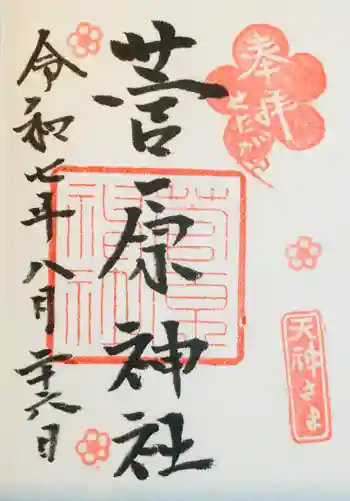 奉拝
とだがや
天神さま
菅原神社
菅原神社
令和七年八月二十六日